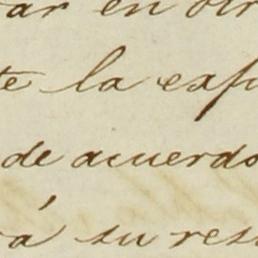 ar en otr
te la exp
de acuerdo
rá su res